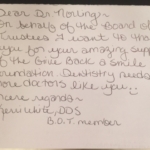 Dear Dr. Norling:
On behalf of the Board of
Trustees I want to than
you for your amazing supp
of the Give Back a Smile
Foundation. Dentistry needs
more doctors like you..
Warm regards~
White, DDS
B.O.T. member